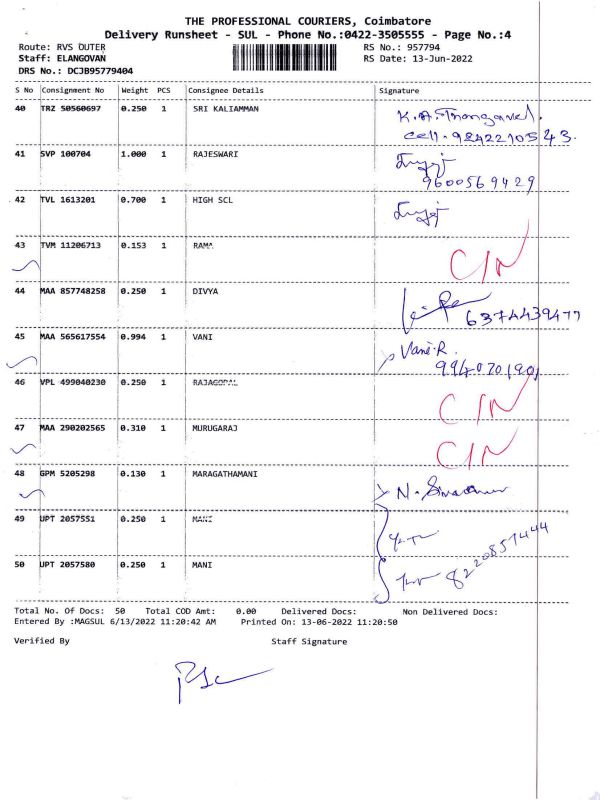 THE PROFESSIONAL COURIERS, Coimbatore
Delivery Runsheet - SUL - Phone No.:0422-3505555 - Page No.:4
Route: RVS OUTER RS No.: 957794
Staff: ELANGOVAN RS Date: 13-Jun-2022
DRS No.: DCJB95779404
S No Consignment No Weight PCS Consignee Details Signature
40 TRZ 50560697 0.250 1 SRI KALIAMMAN K.A. Thangavel.
cell. 9842210543.
41 SVP 100704 1.000 1 RAJESWARI
9600569429
42 TVL 1613201 0.700 1 HIGH SCL
43 TVM 11206713 0.153 1 RAMA C/N
44 MAA 857748258 0.250 1 DIVYA
6374439477
45 MAA 565617554 0.994 1 VANI Vani.R.
46 VPL 499040230 0.250 1 RAJAGOPAL C/N
47 MAA 290202565 0.310 1 MURUGARAJ C/N
48 GPM 5205298 0.130 1 MARAGATHAMANI
49 UPT 2057551 0.250 1 MANI
50 UPT 2057580 0.250 1 MANI 8220857444
Total No. Of Docs: 50 Total COD Amt: 0.00 Delivered Docs: Non Delivered Docs:
Entered By :MAGSUL 6/13/2022 11:20:42 AM Printed On: 13-06-2022 11:20:50
Verified By Staff Signature